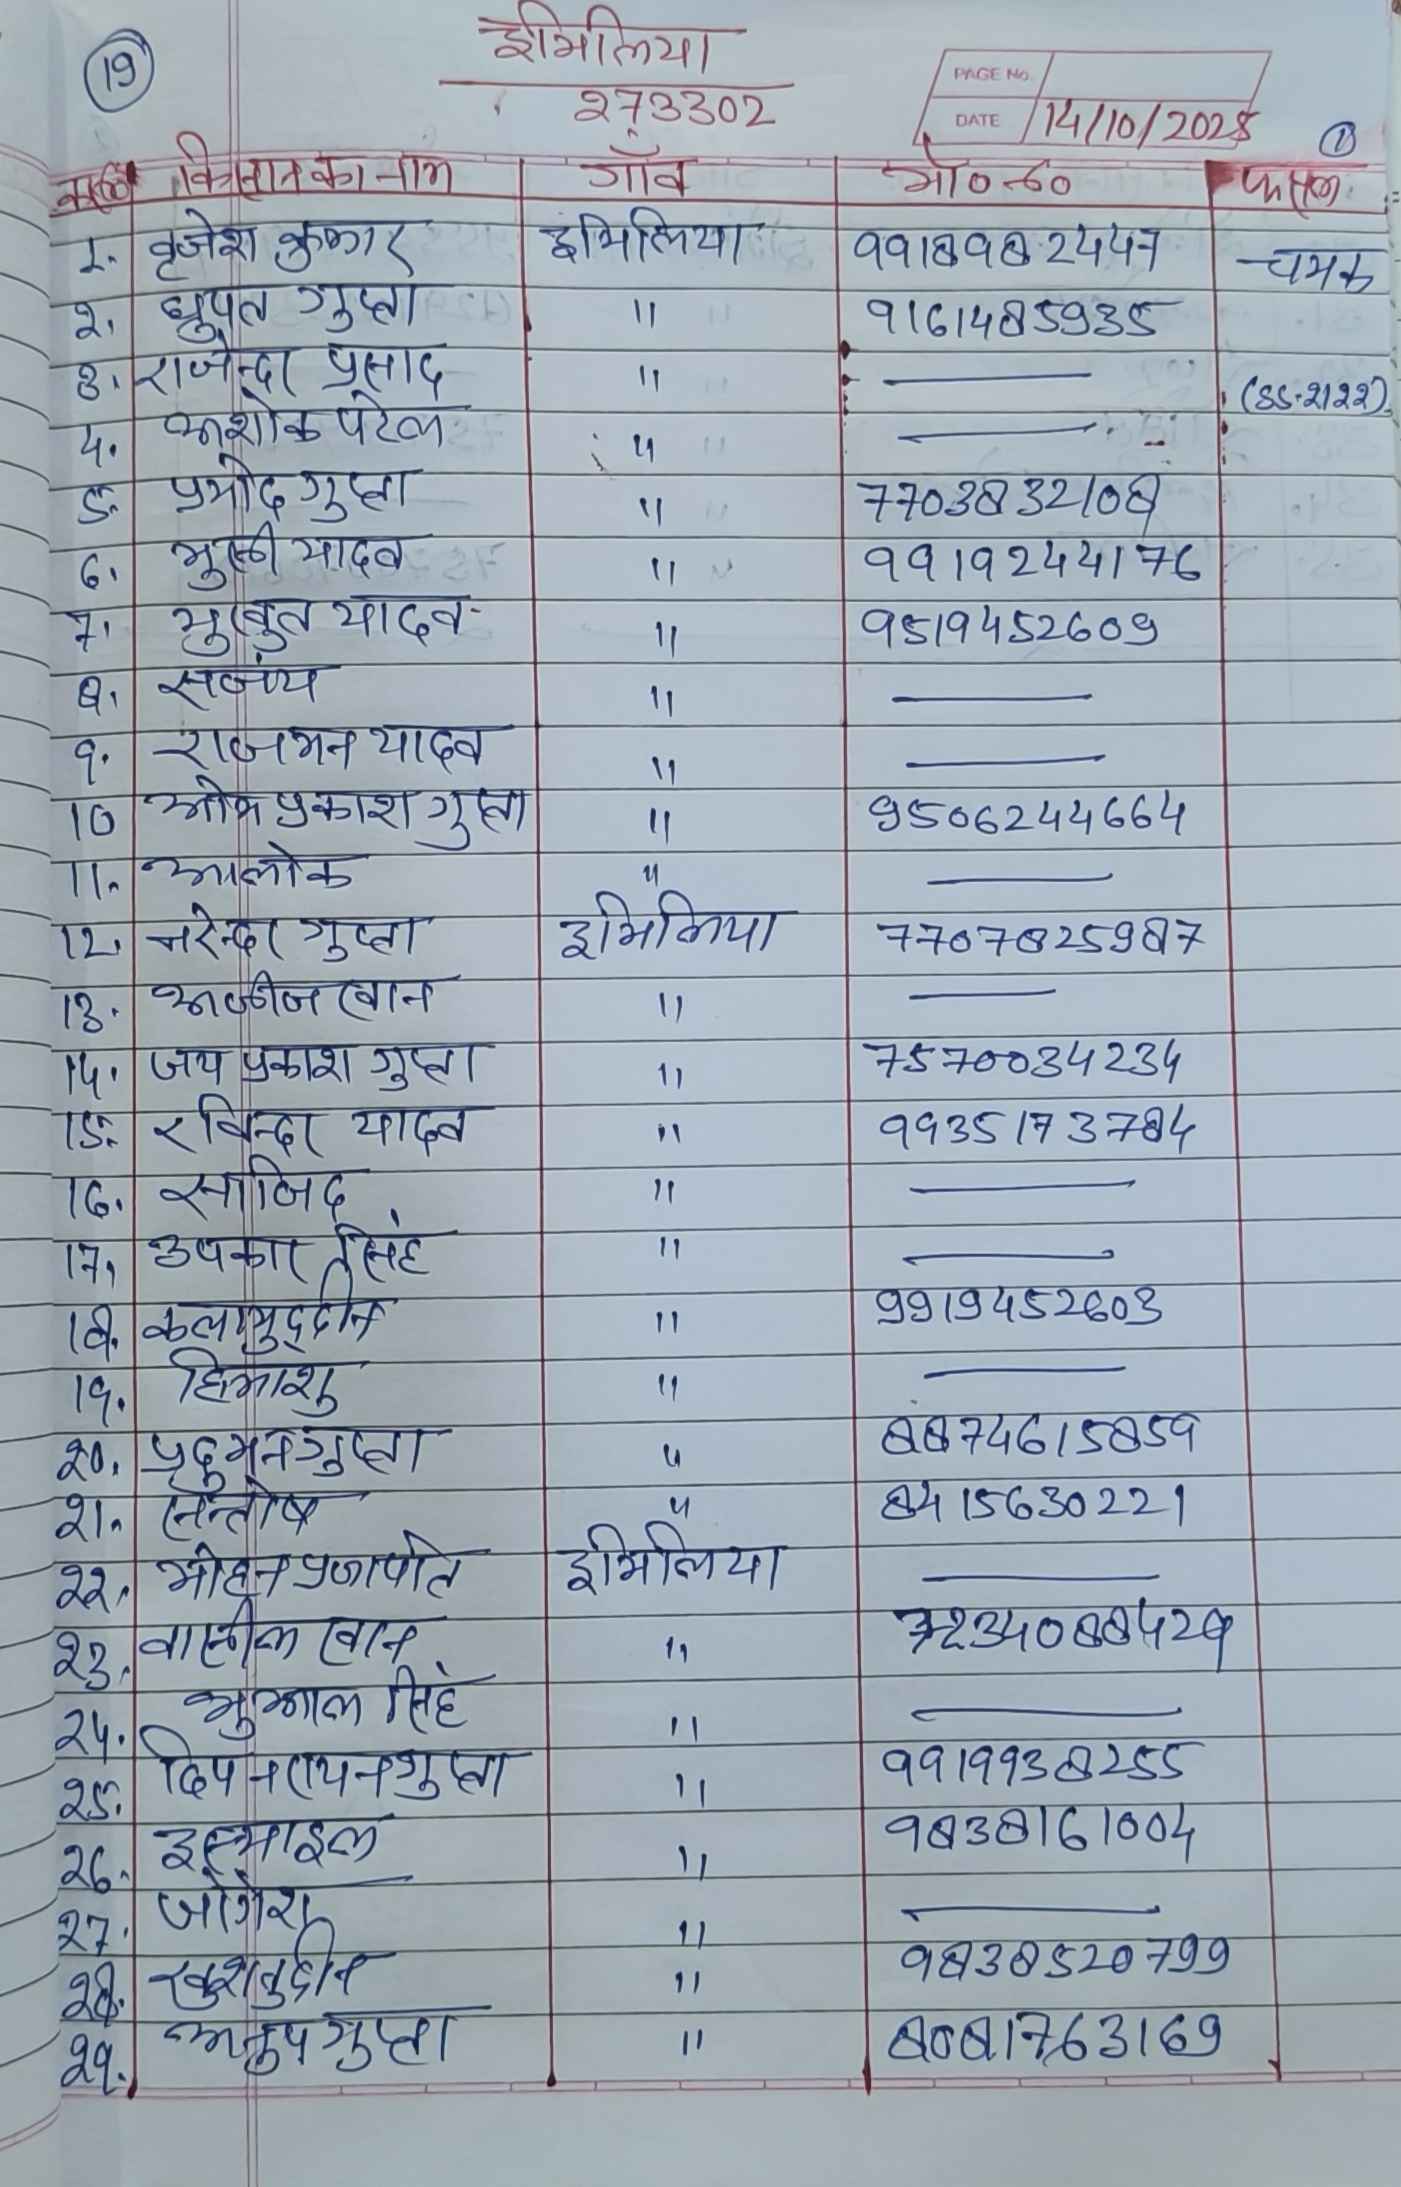 19
इमिलिया
273302
PAGE No.
DATE 14/10/2025
1
क्र०सं० किसान का नाम गाँव मो०नं० फसल
1. वृजेश कुमार इमिलिया 9918982447 चमक
2. धुपत गुप्ता " 9161485935
3. राजेन्द्र प्रसाद " — (SS-2122)
4. अशोक पटेल " —
5. प्रमोद गुप्ता " 7703832108
6. यादव " 9919244176
7. यादव " 9519452609
8. सजंय " —
9. राजमन यादव " —
10 ओम प्रकाश गुप्ता " 9506244664
11. आलोक " —
12. नरेन्द्र गुप्ता इमिलिया 7707825987
13. अजीज खान " —
14. जय प्रकाश गुप्ता " 7570034234
15. रविन्द्र यादव " 9935173784
16. साजिद " —
17. उपकार सिंह " —
18. कलामुद्दीन " 9919452603
19. हिमाशु " —
20. प्रदुमन गुप्ता " 8874615859
21. सन्तोष " 8415630221
22. मोहन प्रजापति इमिलिया —
23. खान " 7234088429
24. सिंह " —
25. दिप नरायन गुप्ता " 9919938255
26. इस्माइल " 9838161004
27. जोगेश " —
28. " 9838520799
29. अनुप गुप्ता " 8081763169